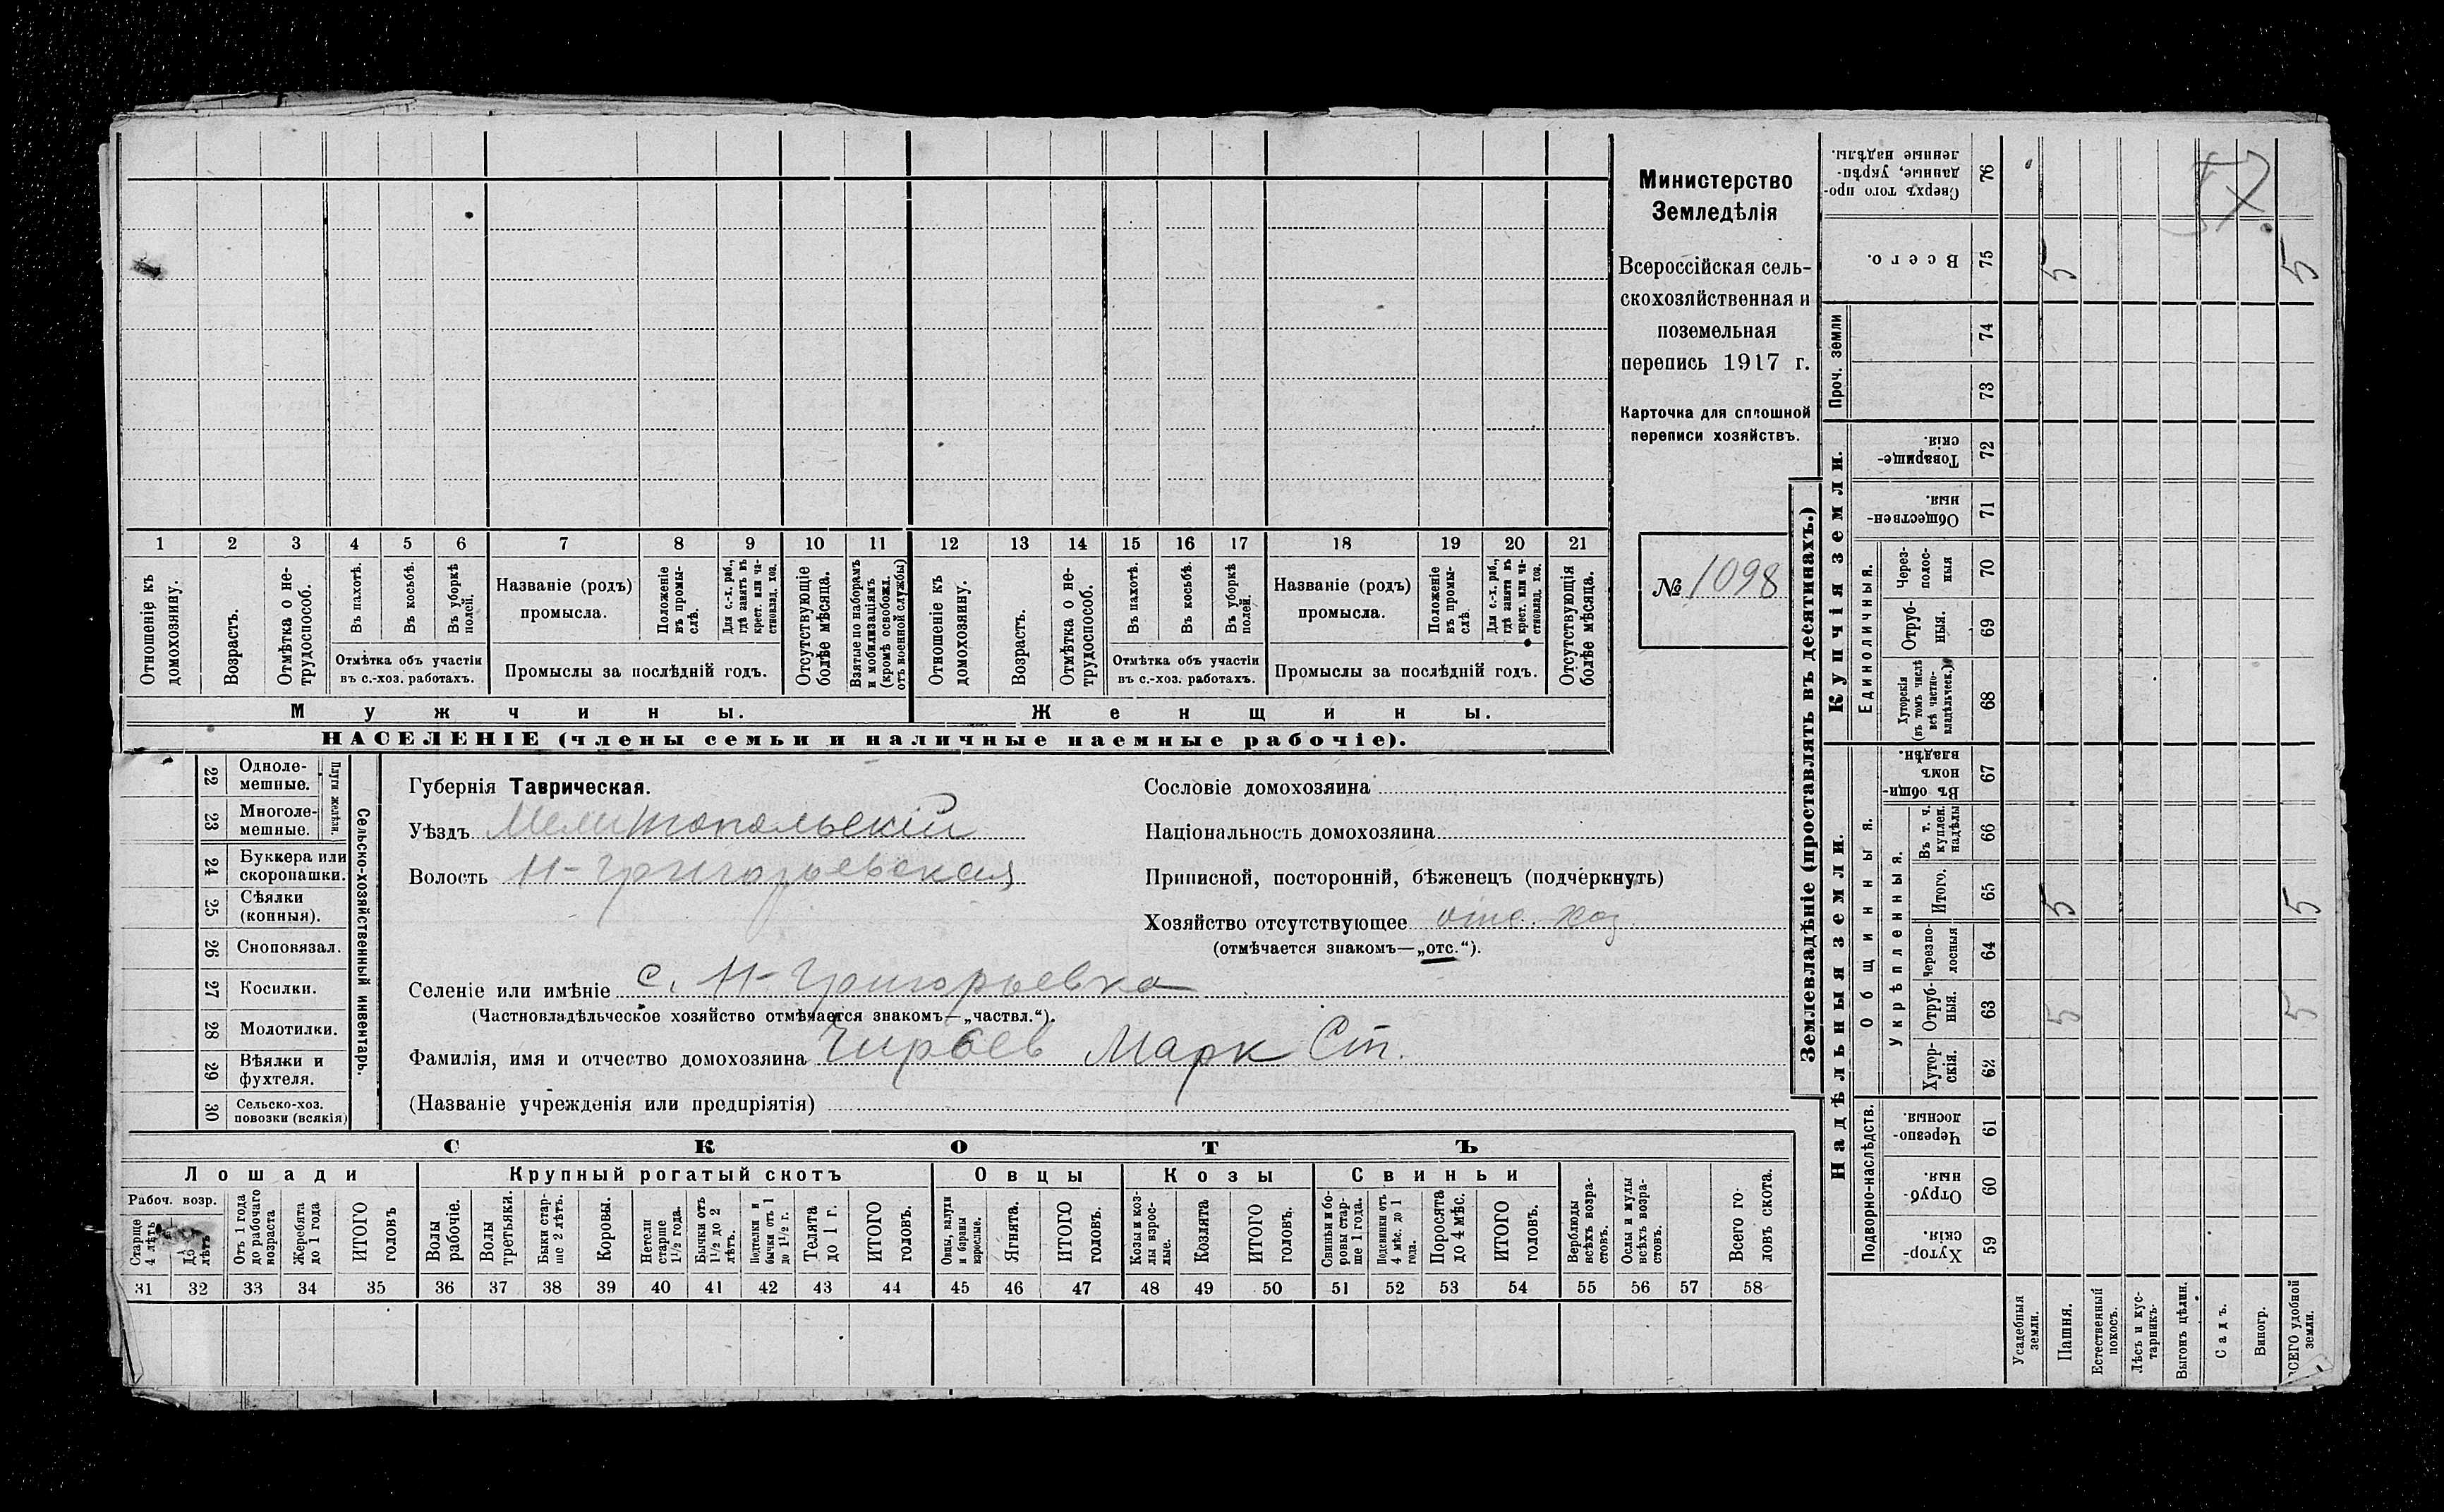 Министерство
Земледѣлія
Всероссійская сель-
скохозяйственная и
поземельная
перепись 1917 г.
Карточка для сплошной
переписи хозяйствъ.
№ 1098
1 2 3 4 5 6 7 8 9 10 11 12 13 14 15 16 17 18 19 20 21
Отношеніе къ домохозяину.
Возрастъ.
Отмѣтка о не-трудоспособ.
Въ пахотѣ.
Въ косьбѣ.
Въ уборкѣ полей.
Отмѣтка объ участіи
въ с.-хоз. работахъ.
Названіе (родъ)
промысла.
Положеніе въ промы-слѣ.
Для с.-х. раб., гдѣ занятъ въ крест. или ча-стновлад. хоз.
Промыслы за послѣдній годъ.
Отсутствующіе болѣе мѣсяца.
Взятые по наборамъ и мобилизаціямъ (кромѣ освобожд. отъ военной службы)
Отношеніе къ домохозяину.
Возрастъ.
Отмѣтка о не-трудоспособ.
Въ пахотѣ.
Въ косьбѣ.
Въ уборкѣ полей.
Отмѣтка объ участіи
въ с.-хоз. работахъ.
Названіе (родъ)
промысла.
Положеніе въ промы-слѣ
Для с.-х. раб., гдѣ занятъ въ крест. или ча-стновлад. хоз.
Промыслы за послѣдній годъ.
Отсутствующія болѣе мѣсяца.
Мужчины.
Женщины.
НАСЕЛЕНІЕ (члены семьи и наличные наемные рабочіе).
22 Одноле-мешные.
23 Многоле-мешные.
Плуги желѣзн.
24 Буккера или скоропашки.
25 Сѣялки (конныя).
26 Сноповязал.
27 Косилки.
28 Молотилки.
29 Вѣялки и фухтеля.
30 Сельско-хоз. повозки (всякія)
Сельско-хозяйственный инвентарь.
Губернія Таврическая.
Уѣздъ Мелитопольскій
Волость Н-Григорьевская
Сословіе домохозяина
Національность домохозяина
Приписной, посторонній, бѣженецъ (подчеркнуть)
Хозяйство отсутствующее отс. хоз
(отмѣчается знакомъ—„отс.“).
Селеніе или имѣніе с. Н-Григорьевка
(Частновладѣльческое хозяйство отмѣчается знакомъ—„частвл.“).
Фамилія, имя и отчество домохозяина Чирьев Марк Ст.
(Названіе учрежденія или предпріятія)
СКОТЪ
Лошади
Крупный рогатый скотъ
Овцы
Козы
Свиньи
Рабоч. возр.
Старше 4 лѣтъ
До лѣтъ
Отъ 1 года до рабочаго возраста
Жеребята до 1 года
ИТОГО головъ
Волы рабочіе.
Волы третьяки.
Быки стар-ше 2 лѣтъ.
Коровы.
Нетели старше 1½ года.
Бычки отъ 1½ до 2 лѣтъ.
Подтелки и бычки отъ 1 до 1½ г.
Телята до 1 г.
ИТОГО головъ.
Овцы, валухи и бараны взрослые.
Ягнята.
ИТОГО головъ.
Козы и коз-лы взрос-лые.
Козлята
ИТОГО головъ.
Свиньи и бо-ровы стар-ше 1 года.
Подсвинки отъ 4 мѣс. до 1 года.
Поросята до 4 мѣс.
ИТОГО головъ.
Верблюды всѣхъ возра-стовъ.
Ослы и мулы всѣхъ возра-стовъ.
Всего го-ловъ скота.
31 32 33 34 35 36 37 38 39 40 41 42 43 44 45 46 47 48 49 50 51 52 53 54 55 56 57 58
Землевладѣніе (проставлять въ десятинахъ.)
Сверхъ того про-данные, укрѣп-ленные надѣлы. 76
Всего. 75 5 5
Проч. земли
74
73
Купчія земли.
Товарище-скія. 72
Обществен-ныя. 71
Единоличныя.
Через-полос-ныя 70
Отруб-ныя. 69
Хуторскія (въ томъ числѣ всѣ частно-владѣльческ.) 68
Надѣльныя земли.
Общинныя.
Въ общи-номъ владѣн. 67
Укрѣпленныя.
Въ т. ч. куплен. надѣлы 66
Итого. 65 5 5
Черезпо-лосныя 64
Отруб-ныя. 63 5 5
Хутор-скія. 62
Подворно-наслѣдств.
Черезпо-лосныя. 61
Отруб-ныя. 60
Хутор-скія. 59
Усадебныя земли.
Пашня.
Естественный покосъ.
Лѣсъ и кус-тарникъ.
Выгонъ цѣлин.
Садъ.
Виногр.
ВСЕГО удобной земли.